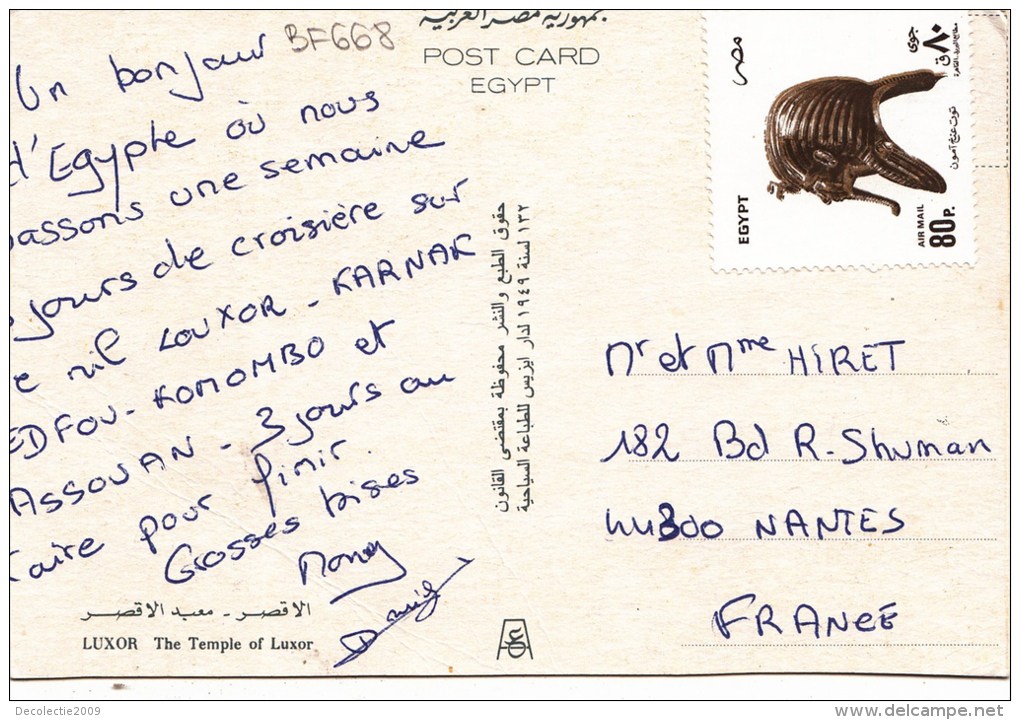 BF668
جمهورية مصر العربية
POST CARD
EGYPT
Un bonjour
d'Egypte où nous
passons une semaine
jours de croisière sur
le nil LOUXOR - KARNAK
EDFOU - KOMOMBO et
ASSOUAN - 3 jours au
Caire pour finir.
Grosses bises
الاقصر - معبد الاقصر
LUXOR The Temple of Luxor
حقوق الطبع والنشر محفوظة بمقتضى القانون
١٣٢ لسنة ١٩٤٩ لدار ايزيس للطباعة السياحية
مصر
٨٠ق
جوى
توت عنخ آمون
EGYPT
AIR MAIL
80P.
Mr et Mme HIRET
182 Bd R. Shuman
44300 NANTES
FRANCE
Decolectie2009
delcampe.net